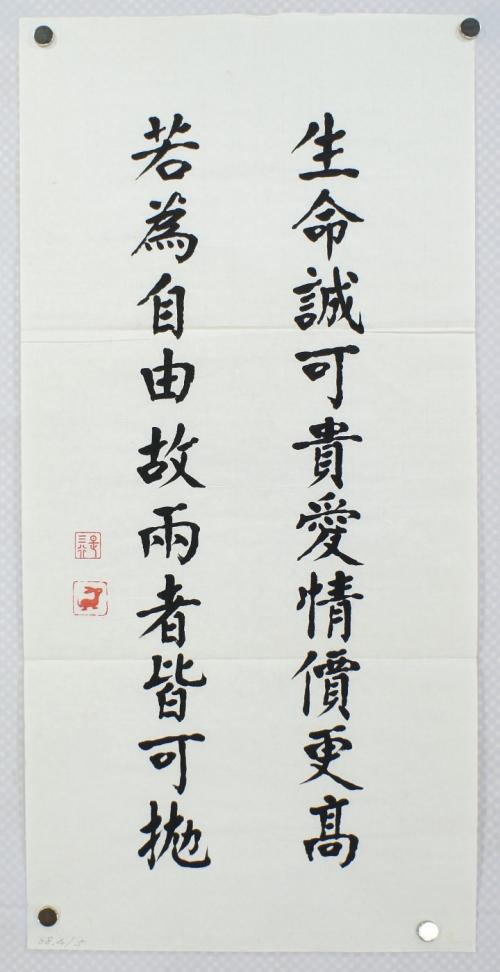 生命誠可貴愛情價更高
若為自由故兩者皆可拋